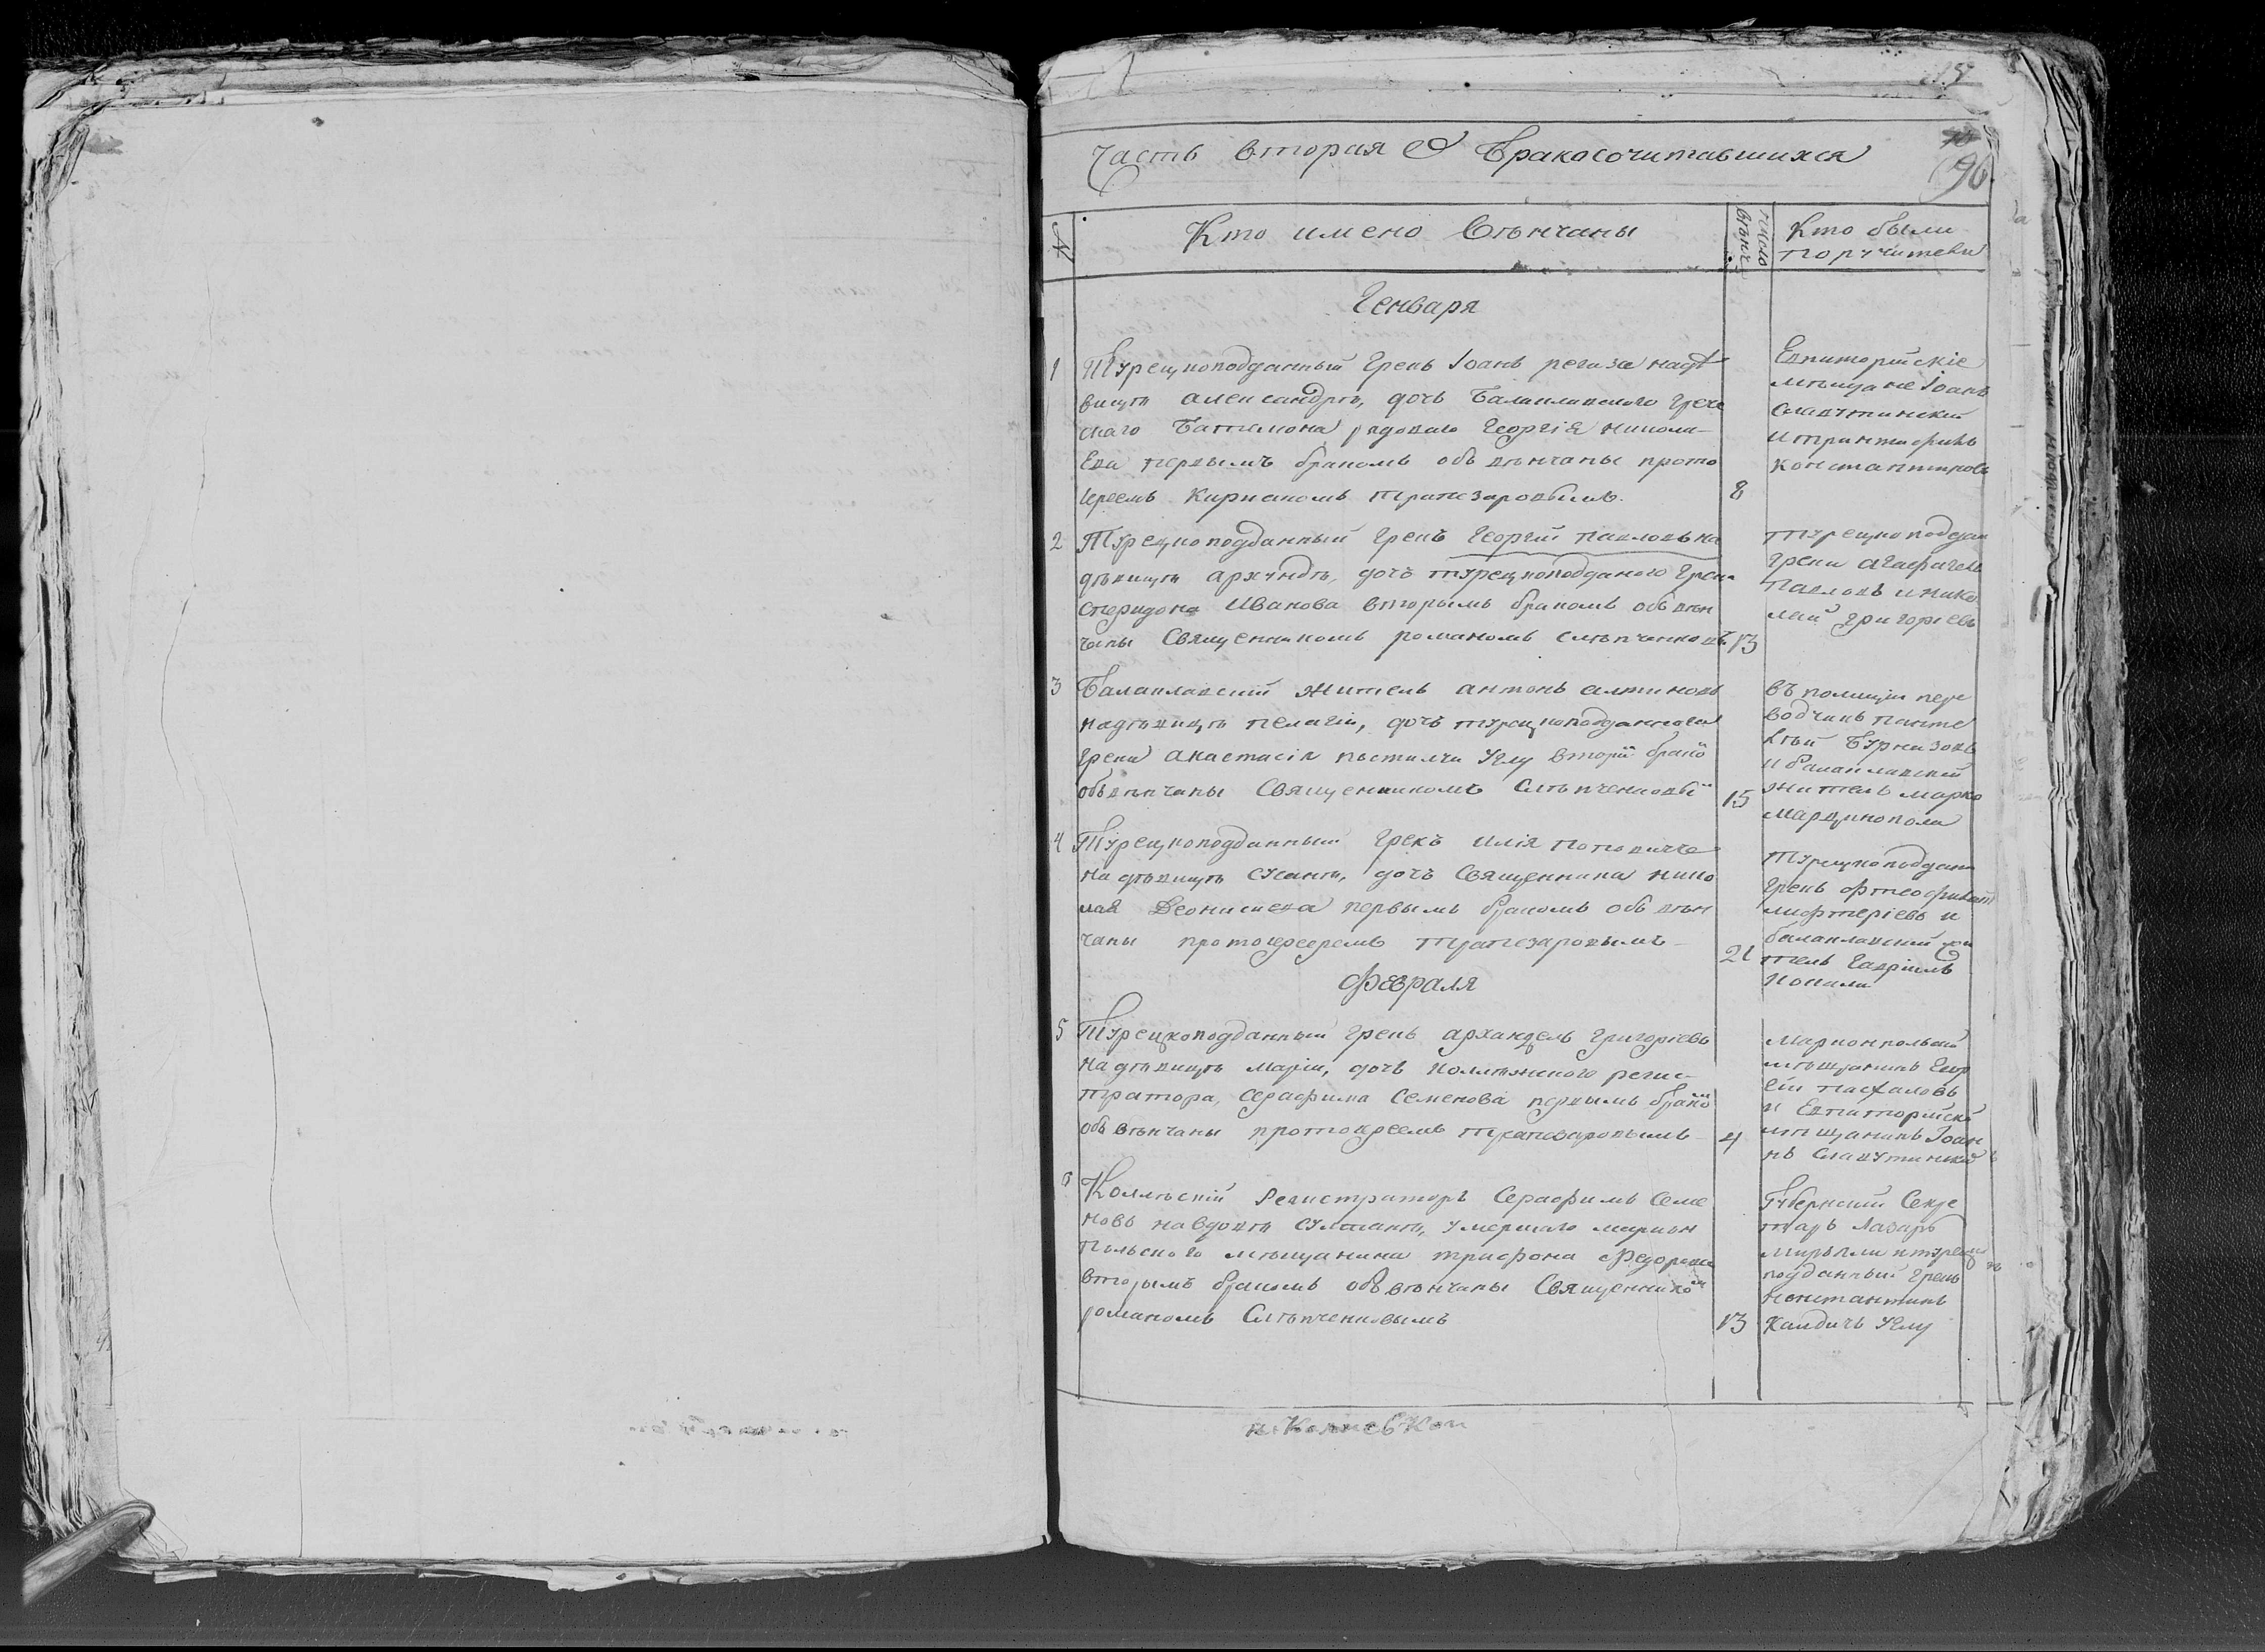 часть вторая О Бракосочитавшихся
96
№
Кто имено Венчаны
число венч.
Кто были
поручители
Генваря
1
Турецкоподданный Грекъ Іоанъ регаза надѣ
вицѣ александрѣ, дочь Балаклавского Грече
скаго Баталиона рядоваго Георгія Никола-
Ева первымъ бракомъ объ вѣнчаны прото
Іереемъ Кириакомъ Трапезаровымъ.
8
Евпиторийскіе
мѣщане Іоанъ
Славутинский
и тринтафилъ
Константиновъ
2
Турецкоподданный Грекъ Георгий Павловъ на
дѣвицѣ архундѣ, дочь турецкоподданого Грека
Спиридона Иванова вторымъ бракомъ объ вѣн
чаны Священникомъ романомъ слѣпченковъ
13
турецкоподдан
Греки агафагелъ
Павловъ и нико
лай григориевъ
3
Балаклавский житель антонъ алтиновъ
надѣвицѣ пелагіи, дочь турецкоподданного
Грека анастасія костилчи Углу вторы бракo
объвѣнчаны Священникомъ Слѣпченковы
15
въ полиции пере
водчикъ панте
лѣй Бурназовъ
и балаклавский
житель марко
марцинополи
4
Турецкоподданный Грекъ илія поповичъ
на дѣвицѣ сусанѣ, дочь Священника нико
лая Деонисиева первымъ бракомъ объ вѣн
чаны протоиереемъ трапезаровымъ
21
Турецкоподдан
Грекъ фтеофилакт
лифтеріевъ и
балаклавский жи
тель Гавріилъ
Февраля
5
Турецкоподданный Грекъ архангелъ Григоріевъ
на дѣвицѣ маріи, дочь коллѣжского регис-
тратора, Серафима Семенова первымъ брако
объ вѣнчаны протоиреемъ трапезаровымъ
4
Мариопольский
мѣщанинъ Геор
гий пасхаловъ
и Евпаторийски
мѣщанинъ Іоан
нъ славутинский
6
Коллѣский Регистраторъ Серафимъ Семе
новъ на вдовѣ султанѣ, умершаго мариам
польского мѣщанина трифона Федорова
вторымъ бракомъ объ вѣнчаны Священнико
романомъ Слѣпченковымъ
13
Губернский Секре
тарь Лазарь
и турецко
подданный Грекъ
Константинъ
Углу